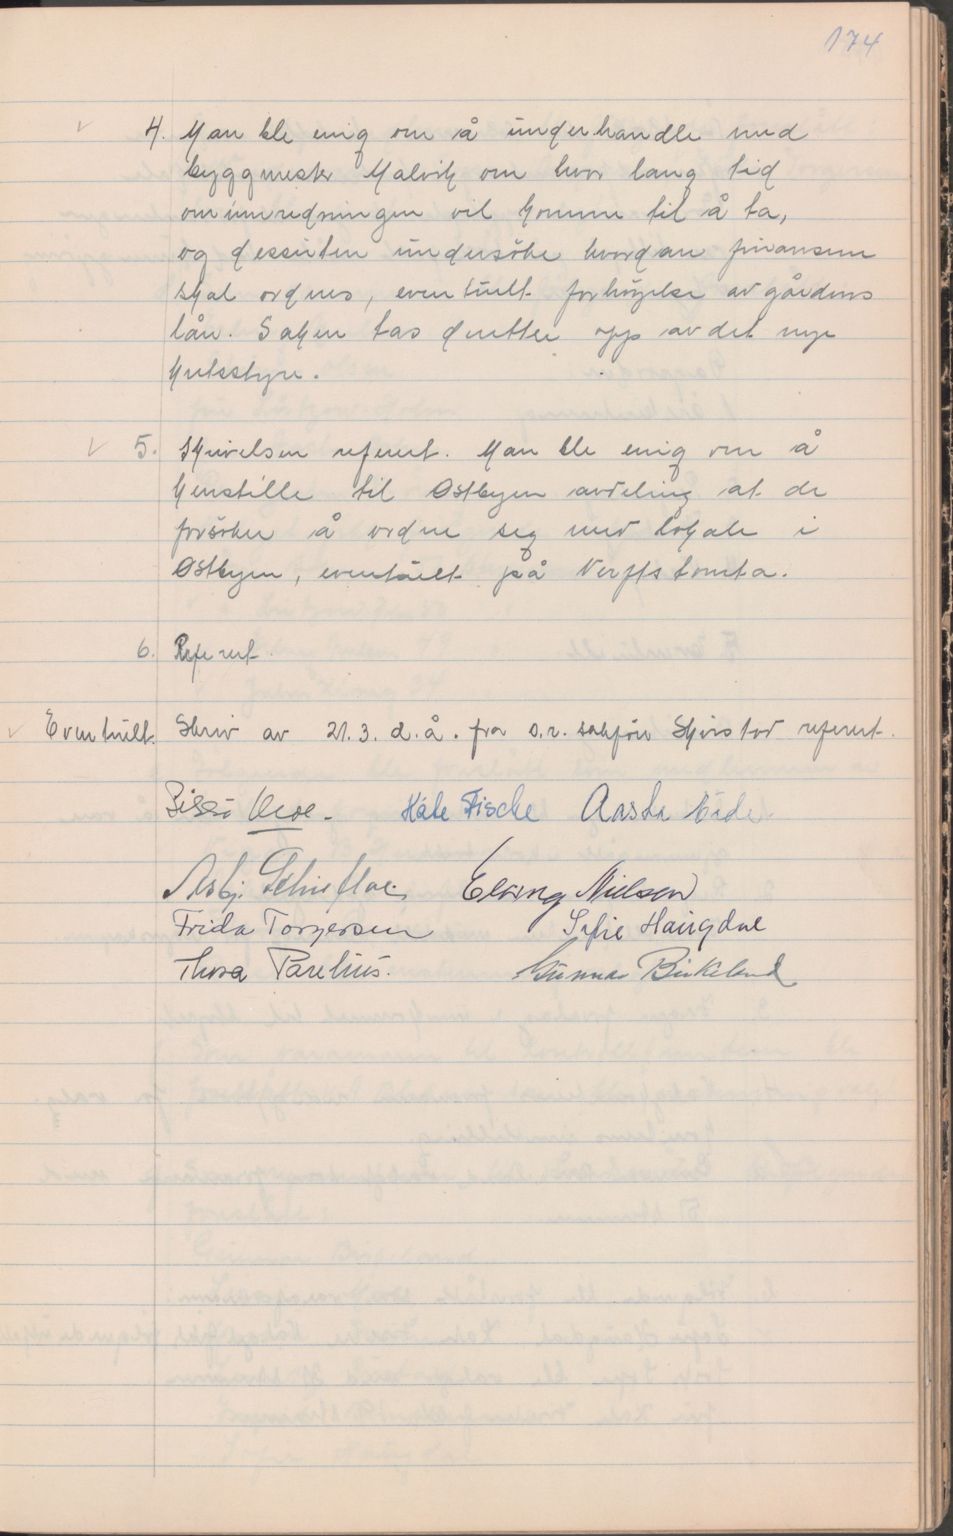 174
4. Man ble enig om å underhandle med
byggmester Malvik om hvor lang tid
ominnredningen vil komme til å ta,
og dessuten undersöke hvordan finansen
skal ordnes, eventuelt forhöyelse av gårdens
lån. Saken tas deretter opp av det nye
kretsstyre.
5. Skrivelsen referert. Man ble enig om å
henstille til Östbyen avdeling at de
forsöker å ordne seg med lokale i
Östbyen, eventuelt på Verftstomta.
6. Referert.
Eventuelt. Skriv av 21.3. d.å. fra o.r. sakför. Skirstad referert.
Käte Fische Aasta
Asbj. Elving Nielsen
Frida Torgersen Sofie Haugdal
Thora Parelius. Gunnar Birkeland